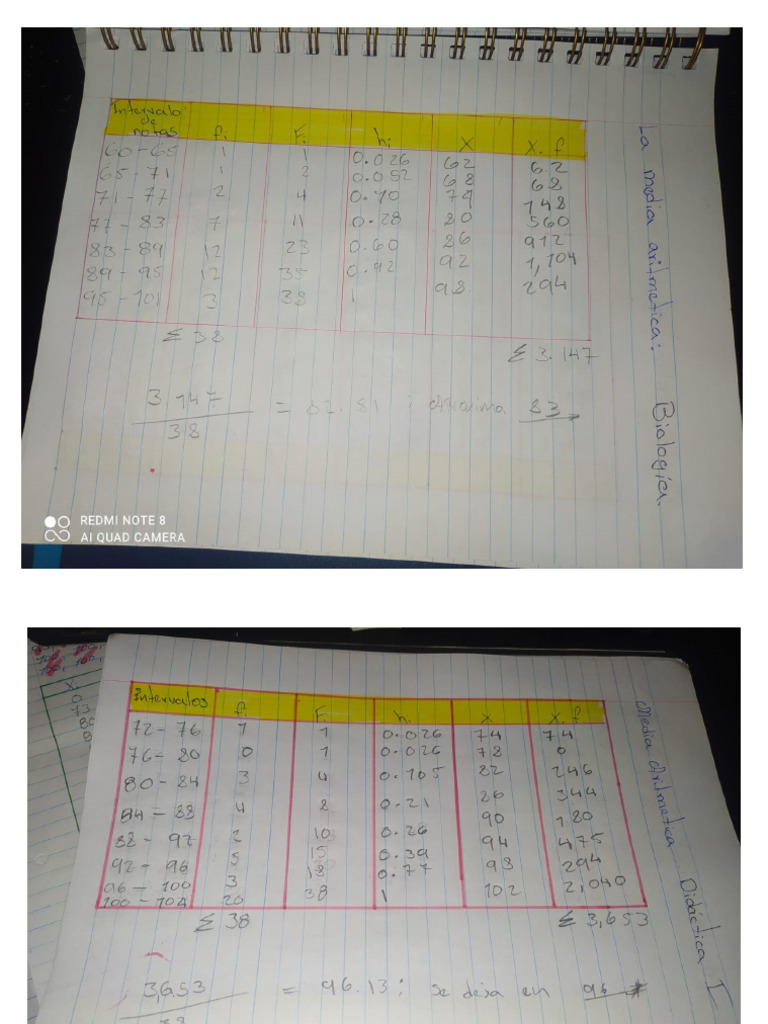 La media aritmetica: Biologia.
Intervalo de notas fi Fi hi X X.f
60-65 1 1 0.026 62 62
65-71 1 2 0.052 68 68
71-77 2 4 0.10 74 148
77-83 7 11 0.28 80 560
83-89 12 23 0.60 86 912
89-95 12 35 0.92 92 1,104
95-101 3 38 1 98 294
Σ 38 Σ 3.147
3,147 = 82.81 ; Aproxima 83
38
REDMI NOTE 8
AI QUAD CAMERA
Media Aritmetica Didáctica I
Intervalos f. F. h. X X.f.
72-76 1 1 0.026 74 74
76-80 0 1 0.026 78 0
80-84 3 4 0.105 82 246
84-88 4 8 0.21 86 344
88-92 2 10 0.26 90 180
92-96 5 15 0.39 94 475
96-100 3 18 0.77 98 294
100-104 20 38 1 102 2,040
Σ 38 Σ 3,653
3,653 = 96.13: Se deja en 96
38